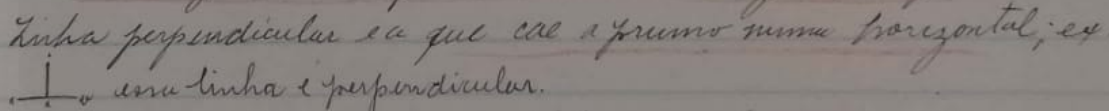 Linha perpendicular e a que cae a prumo numa horizontal; ex
essa linha e perpendicular.